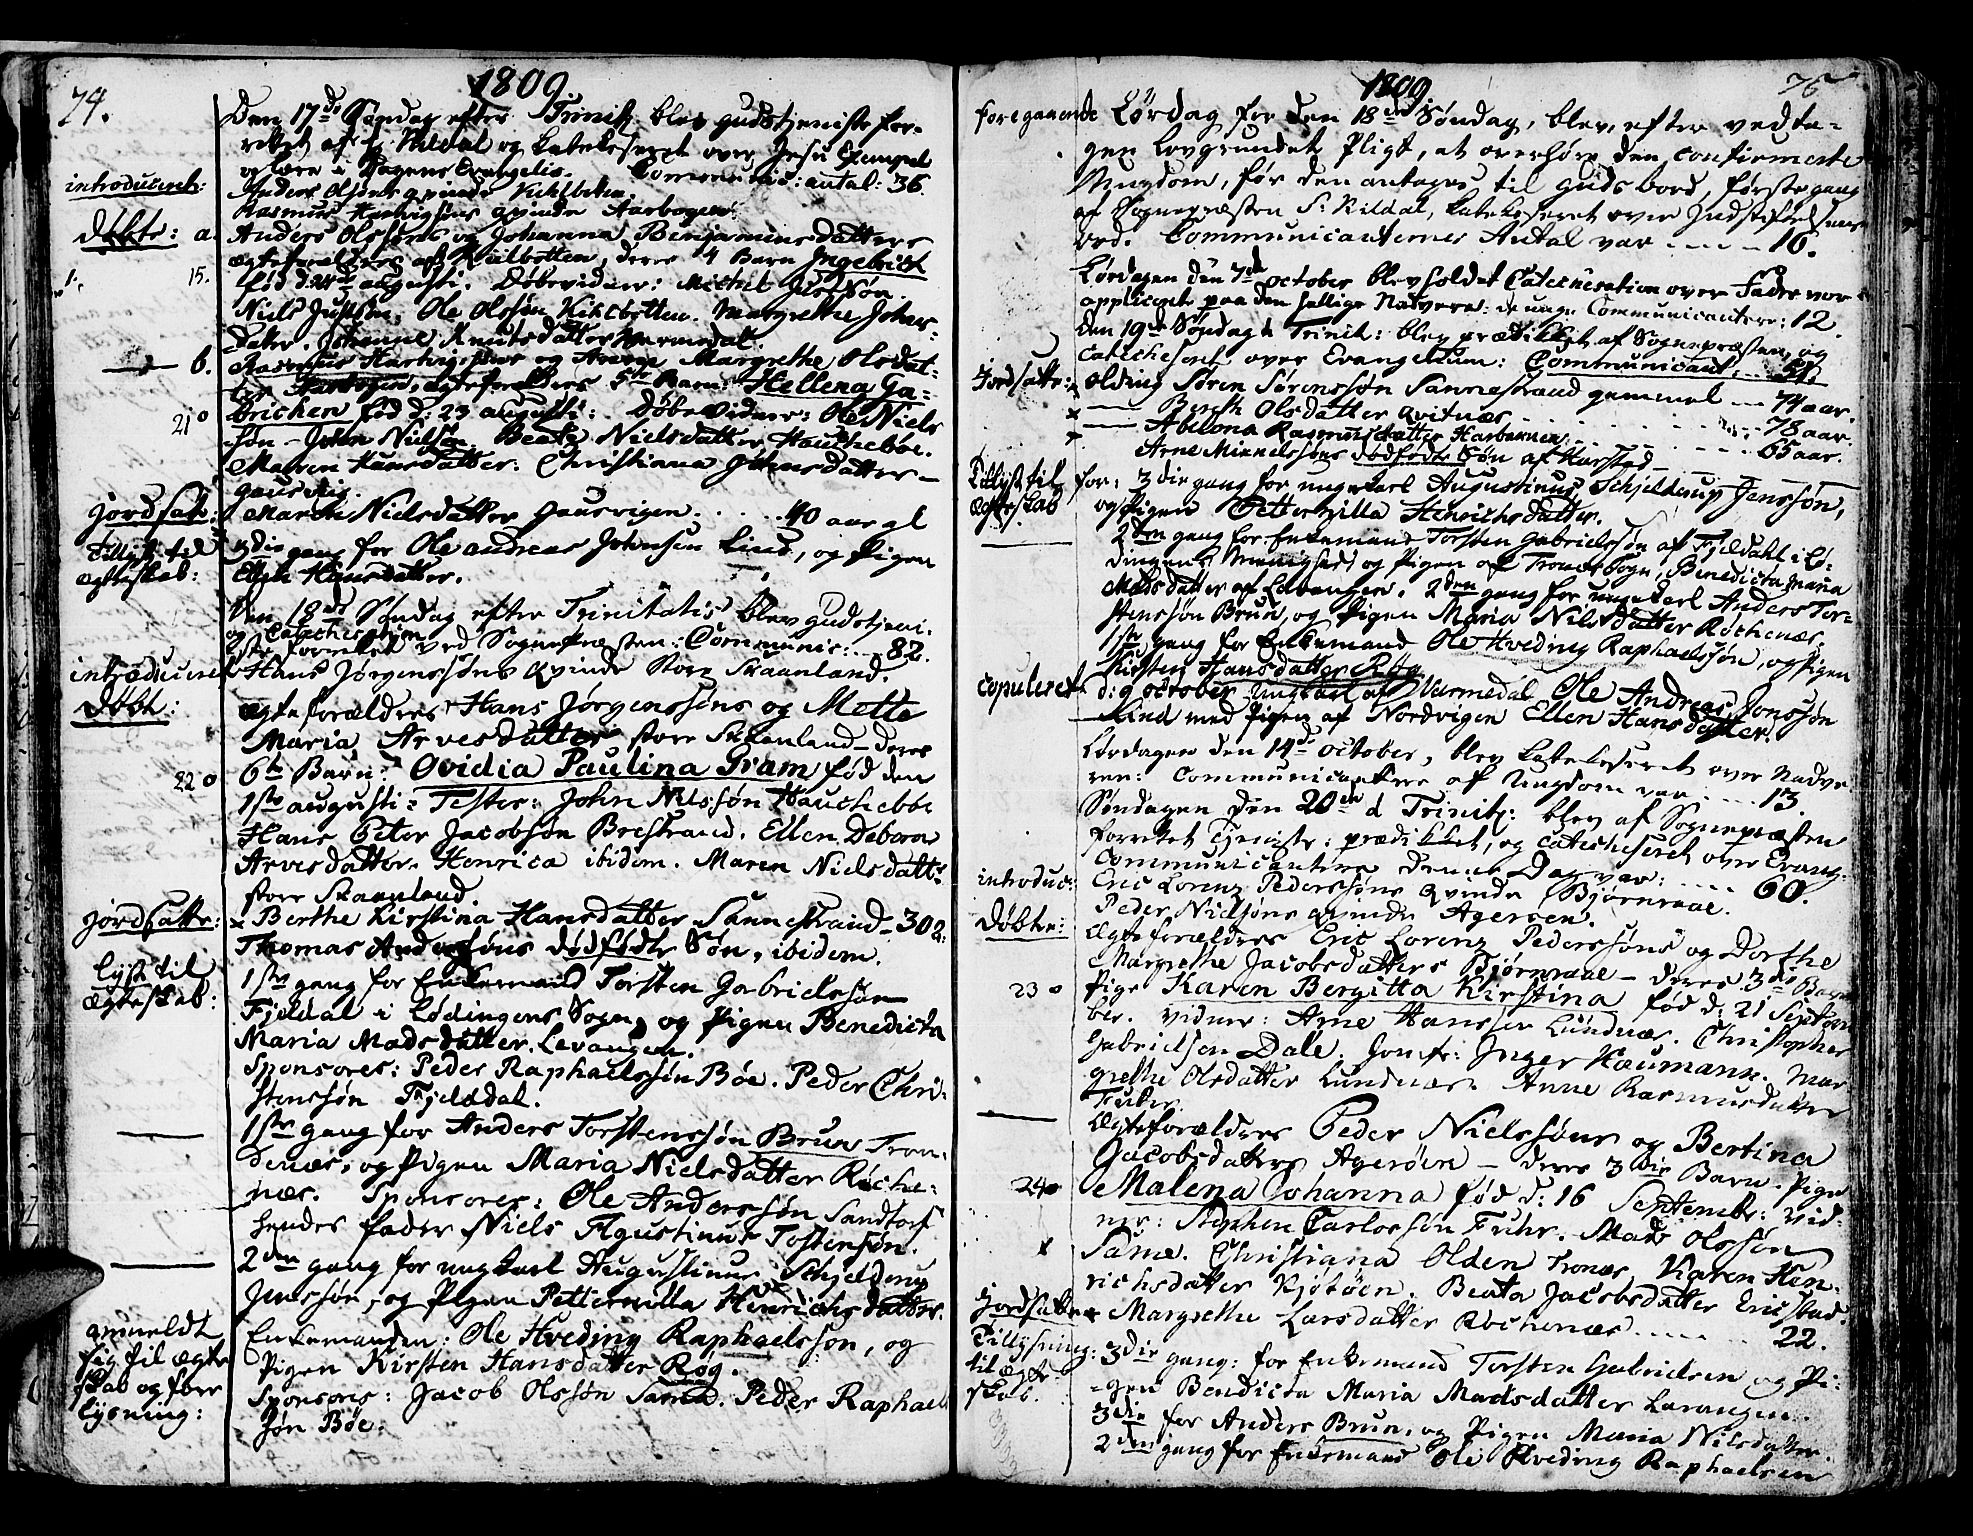 74.
1809.
Den 17de Søndag efter Trinit: blev gudstjeniste for-
rettet af Hr. Kildal og katekeseret over Jesu Exempel
og lære i Dagens Evangelio. Communic: antal: 36.
introduceret: Anders Olsøns qvinde Kihlbotten.
Rasmus Hartvigsøns qvinde Aarbogen.
Døbte: a. Anders Olssøns og Johanna Benjaminsdatters
ægteforældres af Kiilbotten, deres 4 Barn Ingebrict
15. fød d: 24de augusti. Døbevidner: Michel Justsøn
Niels Justsøn. Ole Olssøn Kihlbotten. Margrethe Johns-
Datter. Johanne Knutsdatter Varmedal.
b. Rasmus Hartvigsøns og Margrethe Olsdat-
ter Aarbogen, ægteforældres 5te Barn: Hellena Ga-
21 o brichen fød d: 23 augusti: Døbevidner: Ole Niels
søn - John Nielsøn. Beate Nielsdatter Houchebøe.
Maren Hansdatter: Christiana Johnsdatter -
Gausvig.
jordsatt: Maren Nielsdatter Gausvigen. . . . . . 40 aar gl
Tillyst til 3die gang for Ole andreas Johnsen Lind, og Pigen
ægteskab: Ellen Hansdatter.
Den 18de Søndag efter Trinitatis blev gudstjeni-
og Catechisation
ste forrettet ved Sognepræsten: Communic: . . 82.
introduceret Hans Jørgenssøns qvinde Store Skaanland.
Døbt: ægteforældres Hans Jørgenssøns og Mette
Maria Arvesdatter store Skaanland - deres
22 o 6te Barn: Ovidia Paulina Gram fød den
1ste augusti: Tester: John Nilssøn Houchebøe
Hans Peter Jacobsøn Brestrand. Ellen Debora
Arvesdatter. Henrica ibidem. Maren Nielsdatt:
store Skaanland.
jordsatte: x Berthe Kirstina Hansdatter Sannestrand - 30 a:
Thomas Andersøns dødfødte Søn, ibidem.
lyst til 1ste gang for Enkemand Torsten Gabrielssøn
ægteskab: Fjeldal i Lødingens Sogn, og Pigen Benedicta
Maria Madsdatter Levangen.
Sponsores: Peder Raphaelssøn Bøe. Peder Chri-
stenssøn Fjelddal.
1ste gang for Anders Torstenssøn Brun Tron-
denæs, og Pigen Maria Nielsdatter Røche-
næs. Sponsores: Ole Anderssøn Sandtorf
hendes fader Niels Agustinus Tostensøn.
2den gang for ungkarl Augustinus Schjelderup
Jenssøn, og Pigen Petternilla Henrichsdatter.
anmeldt Enkemanden: Ole Hveding Raphaelssøn, og
sig til ægte Pigen Kirsten Hansdatter Røg.
skab og for Sponsores: Jacob Olssøn Sama. Peder Raphael
lysning: søn Bøe.
1809
75
foregaaende Lørdag for den 18de Søndag, blev, efter vedta-
gen lovgrundet Pligt, at overhøre den confirmerte
Ungdom, før den antages til Guds bord, første gang
af Sognepræsten S. Kildal, katekeseret over Indstiftelsens
ord. Communicanternes Antal var . . . . 16.
Lørdagen den 7de october blev holdet Catechisation over Fader vor
appliceret paa den hellige Nadvere: de unge Communicantere: 12.
Den 19de Søndag Trinit: blev prædikket af Sognepræsten, og
catecheseret over Evangelium: Communicant: . . 51.
Jordsatte: olding Søren Sørenssøn Sannestrand gammel . . . 74 aar.
x Bereth Olsdatter Qvitnæs . . . . . . . . . 78 aar.
x Abelona Rasmusdatter Harbavnen . . . . . . . . 65 aar.
Arne Mikkelssøns dødfødte Søn af Harstad
Tillyst til for: 3die gang for ungekarl Augustinus Schjelderup Jenssøn,
ægteskab og Pigen Petternilla Henrichsdatter.
2den gang for Enkemand Torsten Gabrielssøn af Fjeldahl i Lø-
dingens Menighed og Pigen af Tronæs Sogn, Benedicta Maria
Madsdatter af Levangen. 2den gang for ungekarl Anders Tor-
stenssøn Brun, og Pigen Maria Nilsdatter Røchenæs.
1ste gang for Enkemand Ole Hveding Raphaelssøn, og Pigen
Kirsten Hansdatter Røg.
copuleret d: 9 october Ungkarl af Varmedal Ole Andreas Jonssøn
Lind med Pigen af Nordvigen Ellen Hansdatter.
Lørdagen den 14de october, blev katekeseret over Nadve
ren: Communicantere af Ungdom var . . . . 13.
Søndagen den 20de Trinit: blev af Sognepræsten
forrettet Tjeniste: prædikket, og catecheseret over Evang:
Communicantere denne Dag var: . . . . 60.
introduc: Eric Lorenz Pederssøns qvinde Bjørnraae.
Peder Nielsøns qvinde Agerøen.
Døbte: Ægteforældres Eric Lorenz Pederssøns og Dorthe
Margrethe Jacobsdatters Bjørnraae - deres 3die Barn
23 o Pige Karen Bergitta Kirstina fød d: 21 Septem
ber. Vidner: Arne Hanssen Lundnæs. Christopher
Gabrielsen Dale. Jomfr: Inger Houmann. Mar-
grethe Olsdatter Lundnæs. Anne Rasmusdatter
Ægteforældres Peder Nielssøns og Bertina
Jacobsdatters Agerøen - deres 3die Barn. Pige
24 o Malena Johanna fød d: 16 Septembr: Vid-
ner: Stephen Carlossøn Fuhr. Mads Olssøn
x Same. Christiana Olden Tronæs Karen Hen-
richsdatter Kjøtøen. Beata Jacobsdatter Ericstad.
Jordsatte x Margrethe Larsdatter Rochenæs . . . . . . 22.
Tillysning: 3die gang: for Enkemand Torsten Gabrielsen og Pi-
til ægte- gen Bendicta Maria Madsdatter Lavangen.
skab. 3die for Anders Brun, og Pigen Maria Nilsdatter
2den gang for Enkemand Ole Hveding Raphaelsen